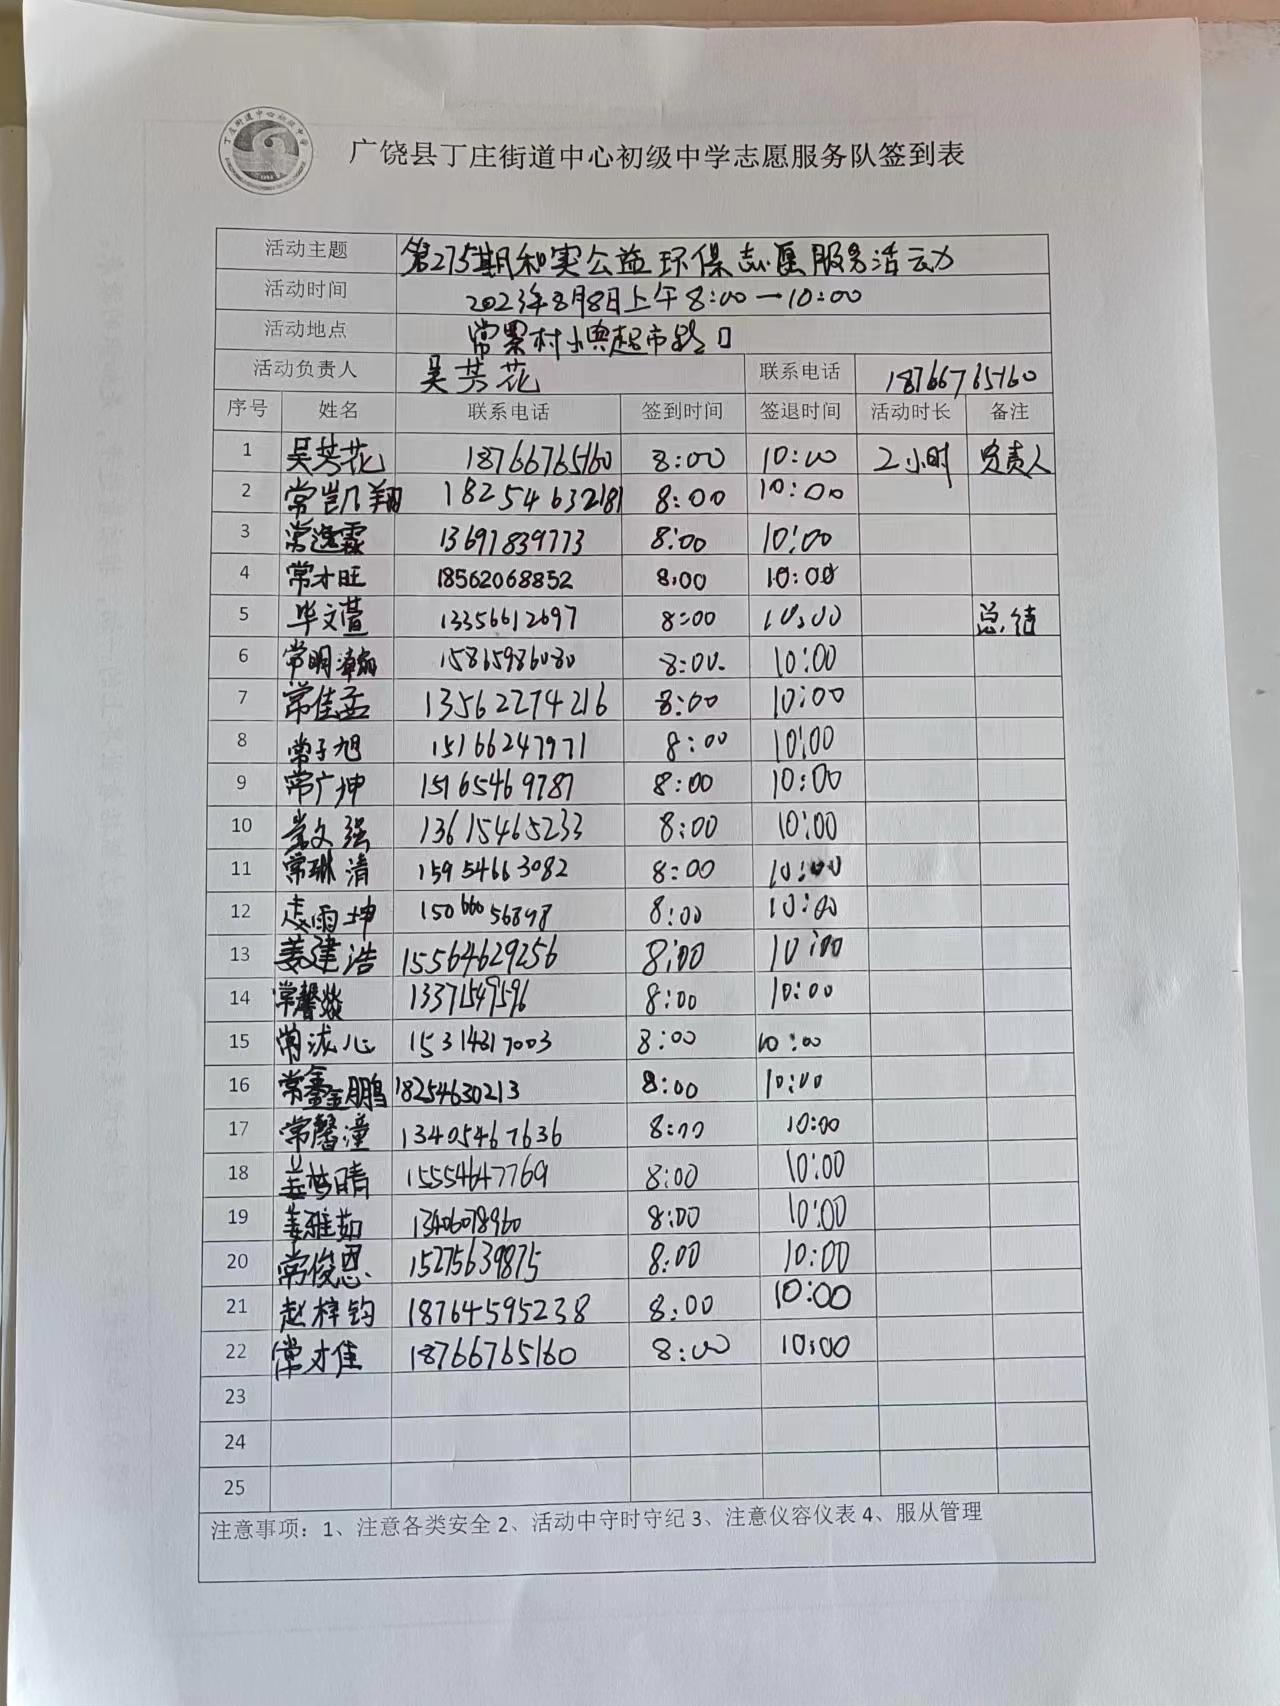 丁庄街道中心初级中学
广饶县丁庄街道中心初级中学志愿服务队签到表
活动主题 第275期和实公益环保志愿服务活动
活动时间 2023年8月8日上午8:00—10:00
活动地点 常果村小典超市路口
活动负责人 吴芳花 联系电话 18766765160
序号 姓名 联系电话 签到时间 签退时间 活动时长 备注
1 吴芳花 18766765160 8:00 10:00 2小时 负责人
2 常凯翔 18254632181 8:00 10:00
3 常逸霖 13697839773 8:00 10:00
4 常才旺 18562068852 8:00 10:00
5 毕文萱 13356612697 8:00 10:00 总结
6 常明瀚 15865986080 8:00 10:00
7 常佳孟 13562274216 8:00 10:00
8 常子旭 15166247971 8:00 10:00
9 常广坤 15165469787 8:00 10:00
10 常文强 13615465233 8:00 10:00
11 常琳清 15954663082 8:00 10:00
12 雨坤 15066656898 8:00 10:00
13 姜建浩 15564629256 8:00 10:00
14 常馨燚 13371549596 8:00 10:00
15 常泷心 15314317003 8:00 10:00
16 常鑫鹏 18254630213 8:00 10:00
17 常馨潼 13405467636 8:00 10:00
18 姜梦晴 15554647769 8:00 10:00
19 姜雅茹 13406078960 8:00 10:00
20 常俊恩 15275639875 8:00 10:00
21 赵梓钧 18764595238 8:00 10:00
22 常才佳 18766765160 8:00 10:00
23
24
25
注意事项：1、注意各类安全 2、活动中守时守纪 3、注意仪容仪表 4、服从管理